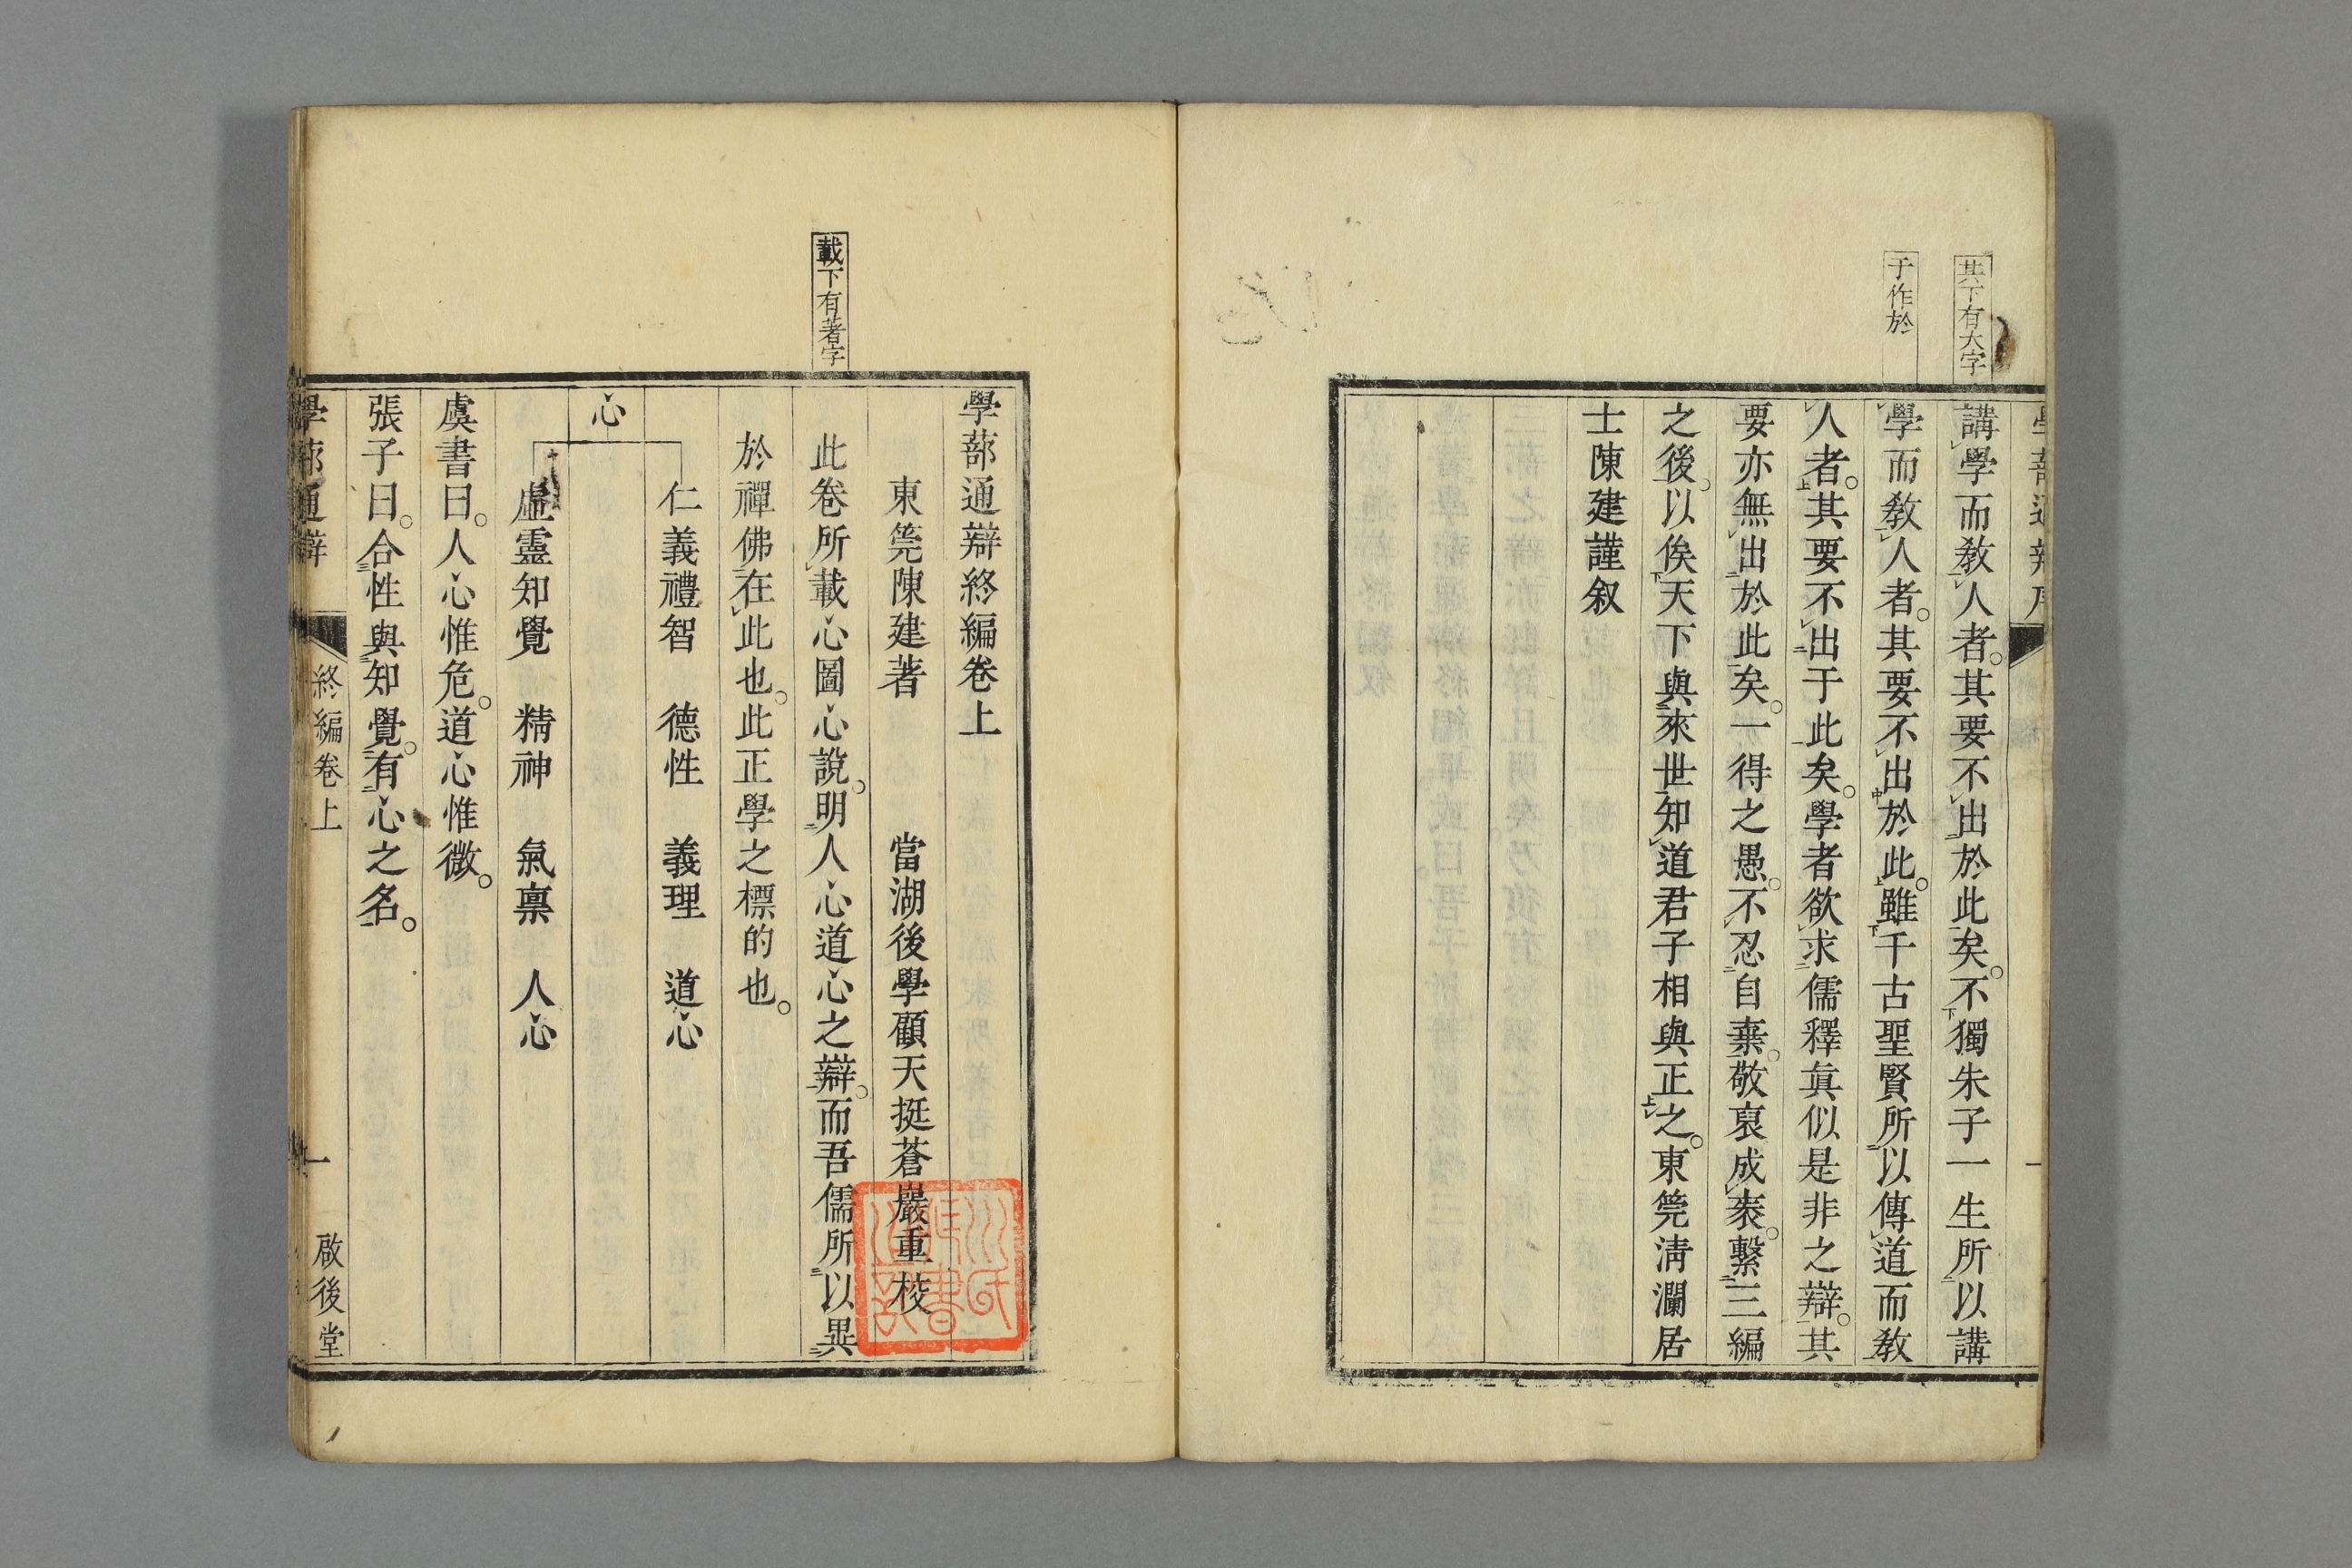 其下有大字
于作於
講學而敎人者其要不出於此矣不獨朱子一生所以講
學而敎人者其要不出於此雖千古聖賢所以傳道而敎
人者其要不出于此矣學者欲求儒釋眞似是非之辯其
要亦無出於此矣一得之愚不忍自棄敬裒成袠繫三編
之後以俟天下與來世知道君子相與正之東筦淸瀾居
士陳建謹叙
載下有著字
學蔀通辯終編卷上
東筦陳建著 當湖後學顧天挺蒼巖重校
此卷所載心圖心說明人心道心之辯而吾儒所以異
於禪佛在此也此正學之標的也
仁義禮智 德性 義理 道心
心
虛靈知覺 精神 氣稟 人心
虞書曰人心惟危道心惟微
張子曰合性與知覺有心之名
學蔀通辯 終編卷上 一 啟後堂